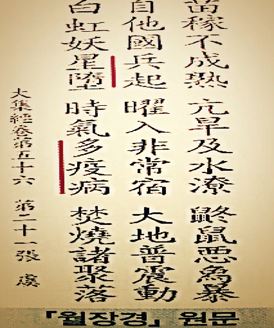 苗稼不成熟 亢旱及水潦 鼨鼠悪鳥暴
自他國兵起 曜入非常宿 大地普震動
白虹妖星墮 時氣多疫病 焚燒諸聚落
大集經卷第五十六 第二十一張 虞
「월장경」 원문